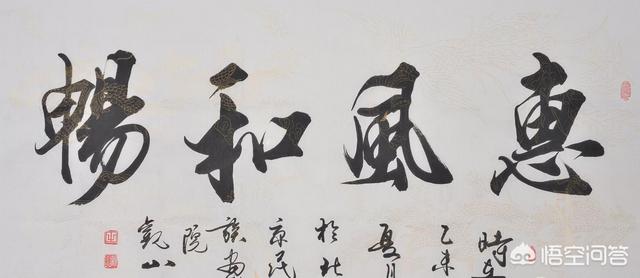 惠風和暢
時在
乙未
夏月
於北
京民
族畫
院
觀山
悟空问答